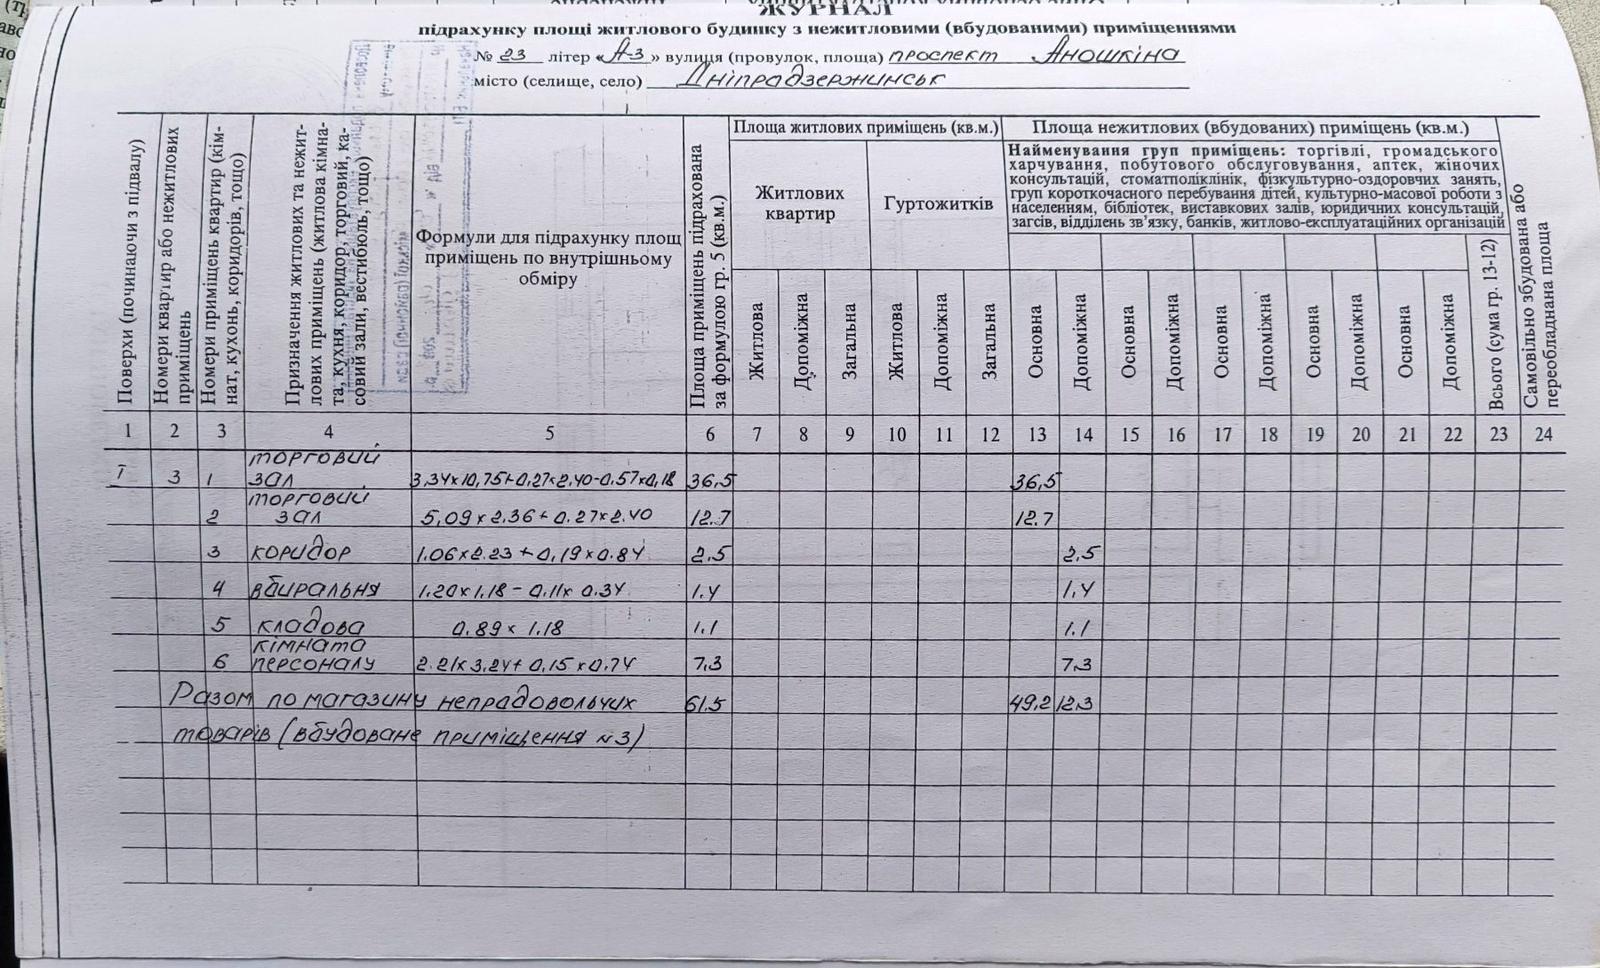 ЖУРНАЛ
підрахунку площі житлового будинку з нежитловими (вбудованими) приміщеннями
№ 23 літер «А-3» вулиця (провулок, площа) проспект Аношкіна
місто (селище, село) Дніпрадзержинськ
Поверхи (починаючи з підвалу)
Номери квартир або нежитлових приміщень
Номери приміщень квартир (кім-
нат, кухонь, коридорів, тощо)
Призначення житлових та нежит-
лових приміщень (житлова кімна-
та, кухня, коридор, торговий, ка-
совий зали, вестибюль, тощо)
Формули для підрахунку площ
приміщень по внутрішньому
обміру
Площа приміщень підрахована
за формулою гр. 5 (кв.м.)
Площа житлових приміщень (кв.м.)
Житлових
квартир
Гуртожитків
Житлова
Допоміжна
Загальна
Житлова
Допоміжна
Загальна
Площа нежитлових (вбудованих) приміщень (кв.м.)
Найменування груп приміщень: торгівлі, громадського
харчування, побутового обслуговування, аптек, жіночих
консультацій, стоматполіклінік, фізкультурно-оздоровчих занять,
груп короткочасного перебування дітей, культурно-масової роботи з
населенням, бібліотек, виставкових залів, юридичних консультацій,
загсів, відділень зв'язку, банків, житлово-експлуатаційних організацій
Основна
Допоміжна
Основна
Допоміжна
Основна
Допоміжна
Основна
Допоміжна
Основна
Допоміжна
Всього (сума гр. 13-12)
Самовільно збудована або
переобладнана площа
1 2 3 4 5 6 7 8 9 10 11 12 13 14 15 16 17 18 19 20 21 22 23 24
I 3 1 торговий зал 3,34×10,75+0,27×2,40-0,57×0,18 36,5 36,5
2 торговий зал 5,09×2,36+0,27×2,40 12.7 12.7
3 коридор 1.06×2.23+0,19×0.84 2,5 2,5
4 вбиральня 1.20×1,18-0,11×0.34 1.4 1,4
5 кладова 0.89×1.18 1,1 1.1
6 кімната персоналу 2.21×3,24+0,15×0,74 7,3 7.3
Разом по магазину непрадовольчих 61.5 49,2 12.3
товарів (вбудоване приміщення №3)